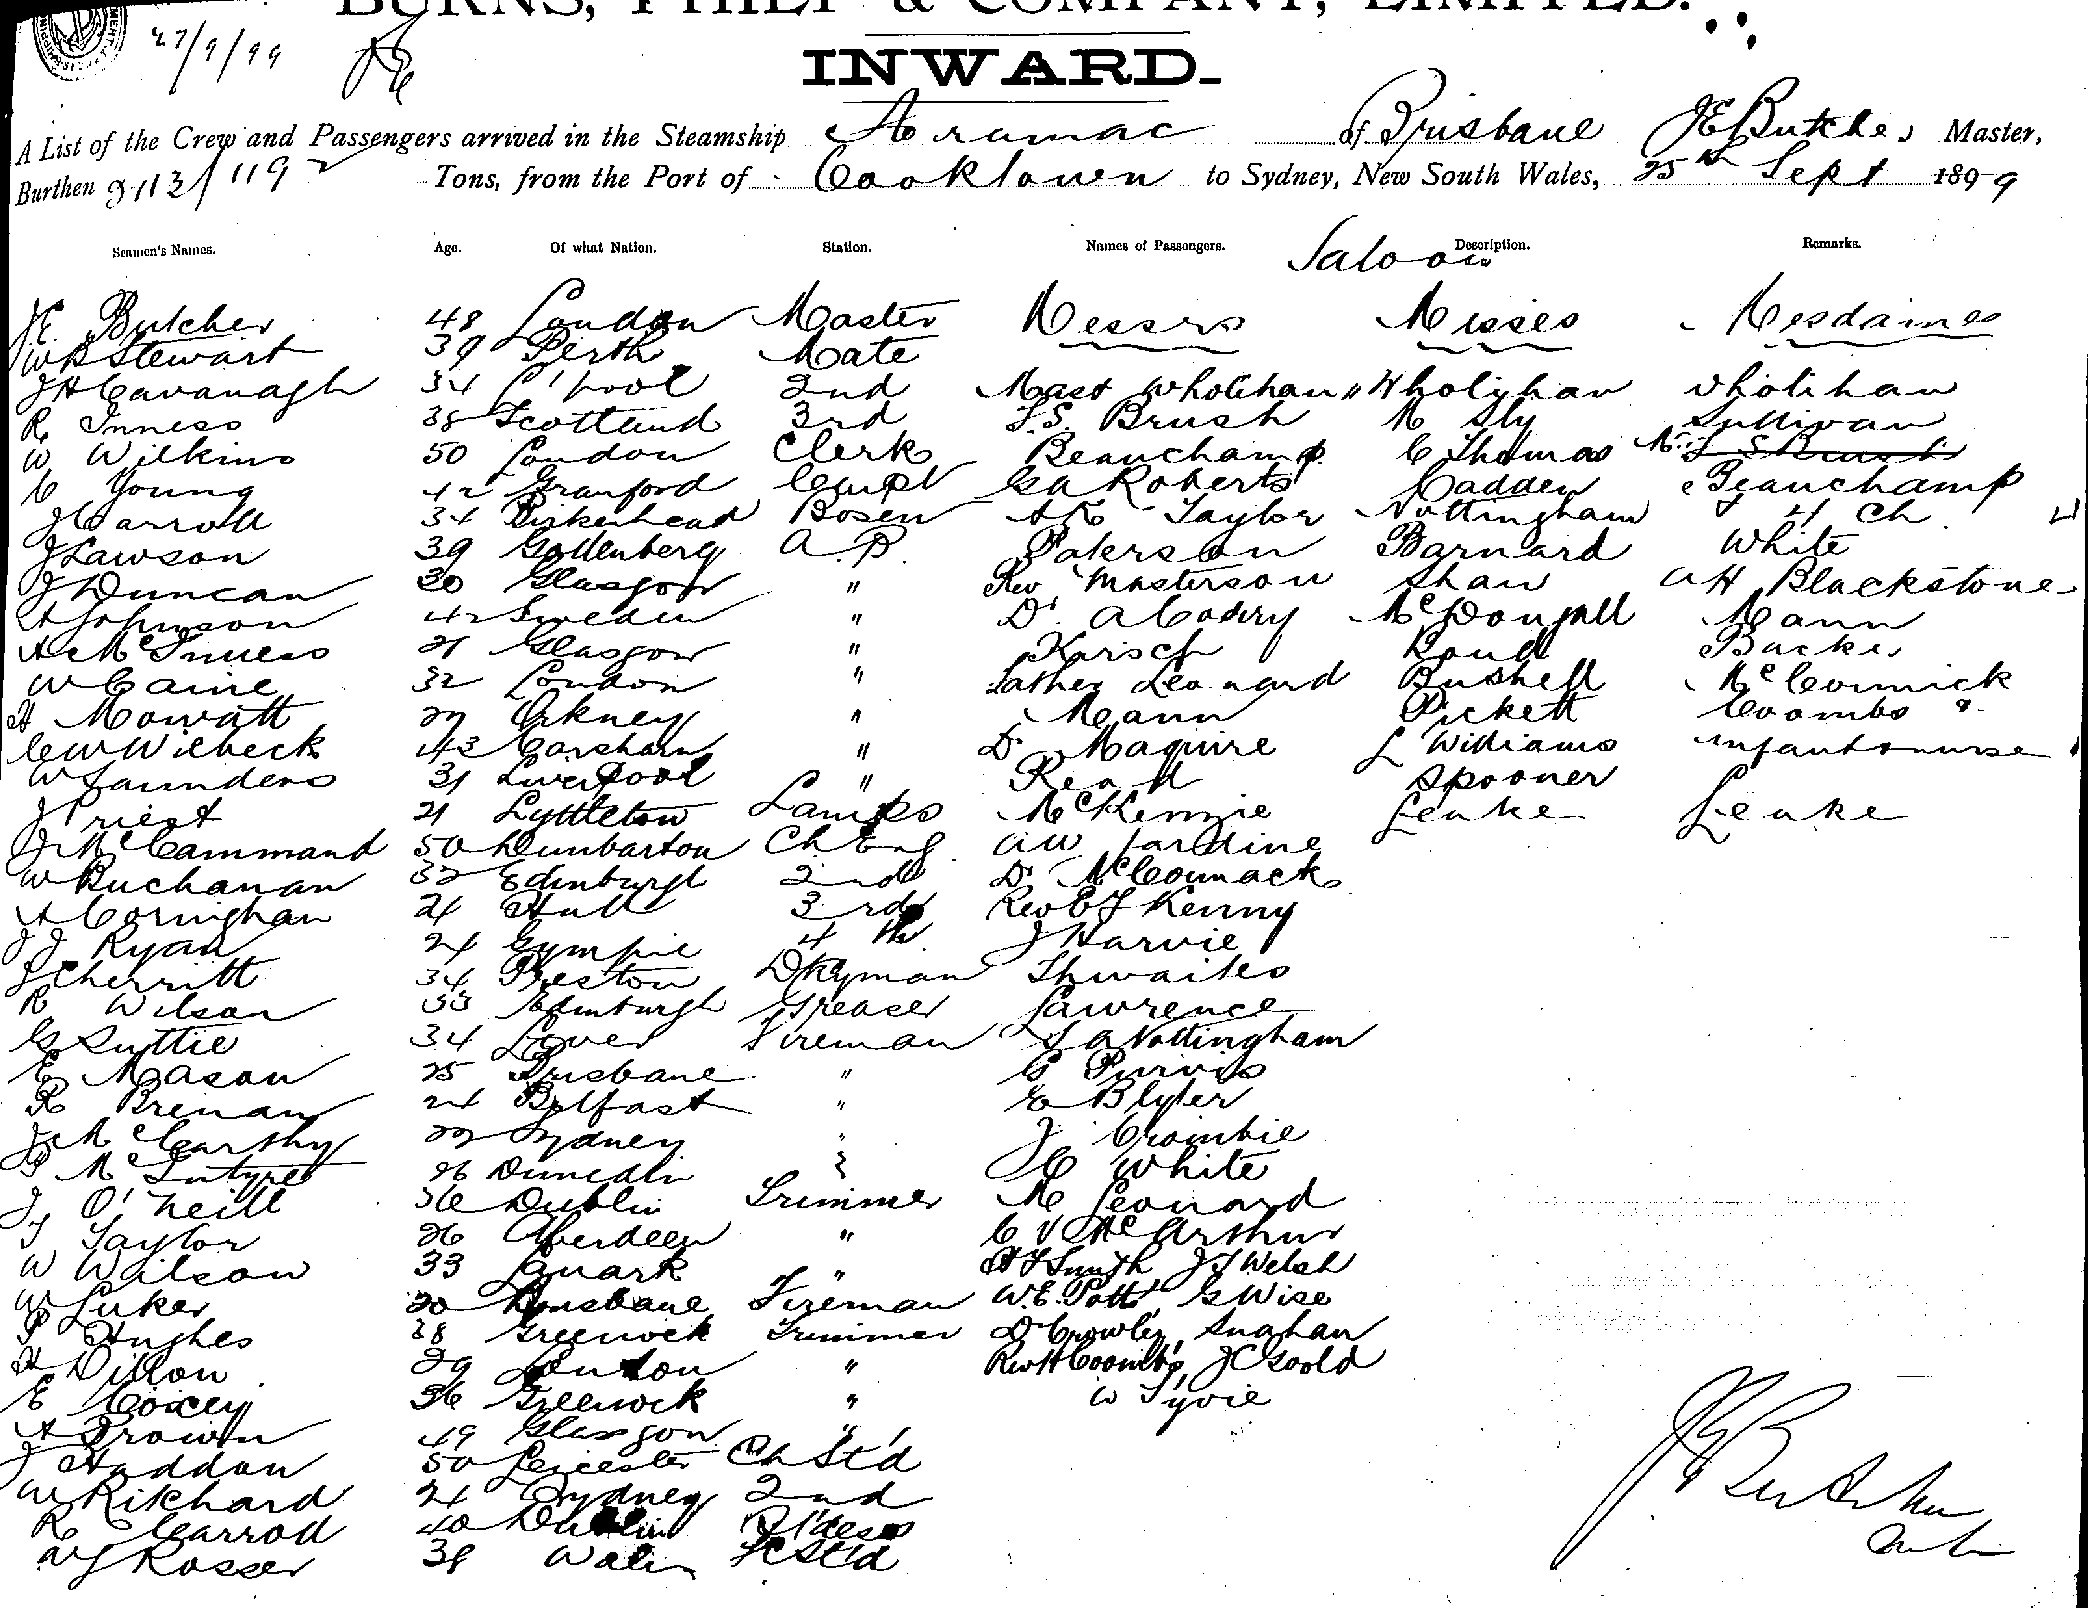 BURNS, PHILP & COMPANY, LIMITED.
27/9/99
INWARD.
A List of the Crew and Passengers arrived in the Steamship Aramac of Brisbane J E Butcher Master,
Burthen 2113/1192 Tons, from the Port of Cooktown to Sydney, New South Wales, 25th Sept 1899
Seamen's Names. Age. Of what Nation. Station. Names of Passengers. Saloon Description. Remarks.
J E Butcher 48 London Master Messrs Misses Mesdames
W B Stewart 39 Perth Mate
J H Cavanagh 34 L'pool 2nd Mast Wholihan " Wholihan Wholihan
R Inness 38 Scotland 3rd T.S. Brush M Sly Sullivan
W Wilkins 50 London Clerk Beauchamp C Thomas T S Brush
C Young 42 Carpt G A Roberts Madden Beauchamp
J Carroll 34 Birkenhead Bosen A R Taylor Nottingham 4 Ch
J Lawson 39 Gottenberg A.B. Paterson Barnard White
J Duncan 30 Glasgow " Rev Masterson Shaw A H Blackstone
A Johnson 42 Sweden " Dr McDougall Mann
A McInness 21 Glasgow " Karsch
W Caine 32 London " Father Leonard Bushell McCormick
H Mowatt 27 Orkney " Mann Pickett Coombs &
C W Wilbeck 43 " Dr Maguire L Williams infant & nurse
W Saunders 31 Liverpool " Read Spooner
J Priest 21 Lyttleton Lamps McKenzie Leake Leake
J McCammand 50 Dunbarton Ch Eng A W Jardine
W Buchanan 32 Edinburgh 2nd Dr McCormack
A Corninghan 24 Hull 3rd Rev E J Kenny
J J Ryan 24 Gympie 4th J Harvie
J Cherritt 34 Preston Dkyman Thwaites
R Wilson 33 Edinburgh Greaser Lawrence
G Suttie 34 Fireman S A Nottingham
E Mason 25 Brisbane " G Purvis
R Brenan 24 Belfast " E Blyter
J McCarthy 22 Sydney " J Crombie
P McIntyre 26 Dunedin " C White
J O'Neill 36 Dublin Trimmer M Leonard
J Taylor 26 Aberdeen " C V McArthur
W Wilson 33 " A J Smyth J J Welsh
W Luker 20 Brisbane Fireman W.E. Potts G Wise
P Hughes 28 Greenock Trimmer Dr Crowley,
H Dillon 29 " Rev H Coombs, J C Goold
E Coxey 36 Greenock " W Tyrie
A Brown 49 Glasgow "
J Haddon 50 Leicester Ch St'd
W Rikhard 24 Sydney 2nd
R Carrod 40 Dublin St'dess
W J Rosser 38 Wales F C St'd
J E Butcher